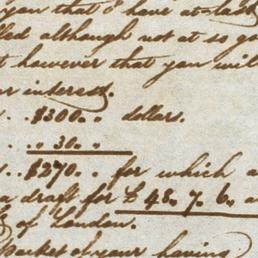 you that I have at last
although not at so go
however that you will
interest.
.. $300.. dollar.
.. 30..
.. $270.. for which a
a draft for £ 48. 7. 6. a
of London.
Packet of your having